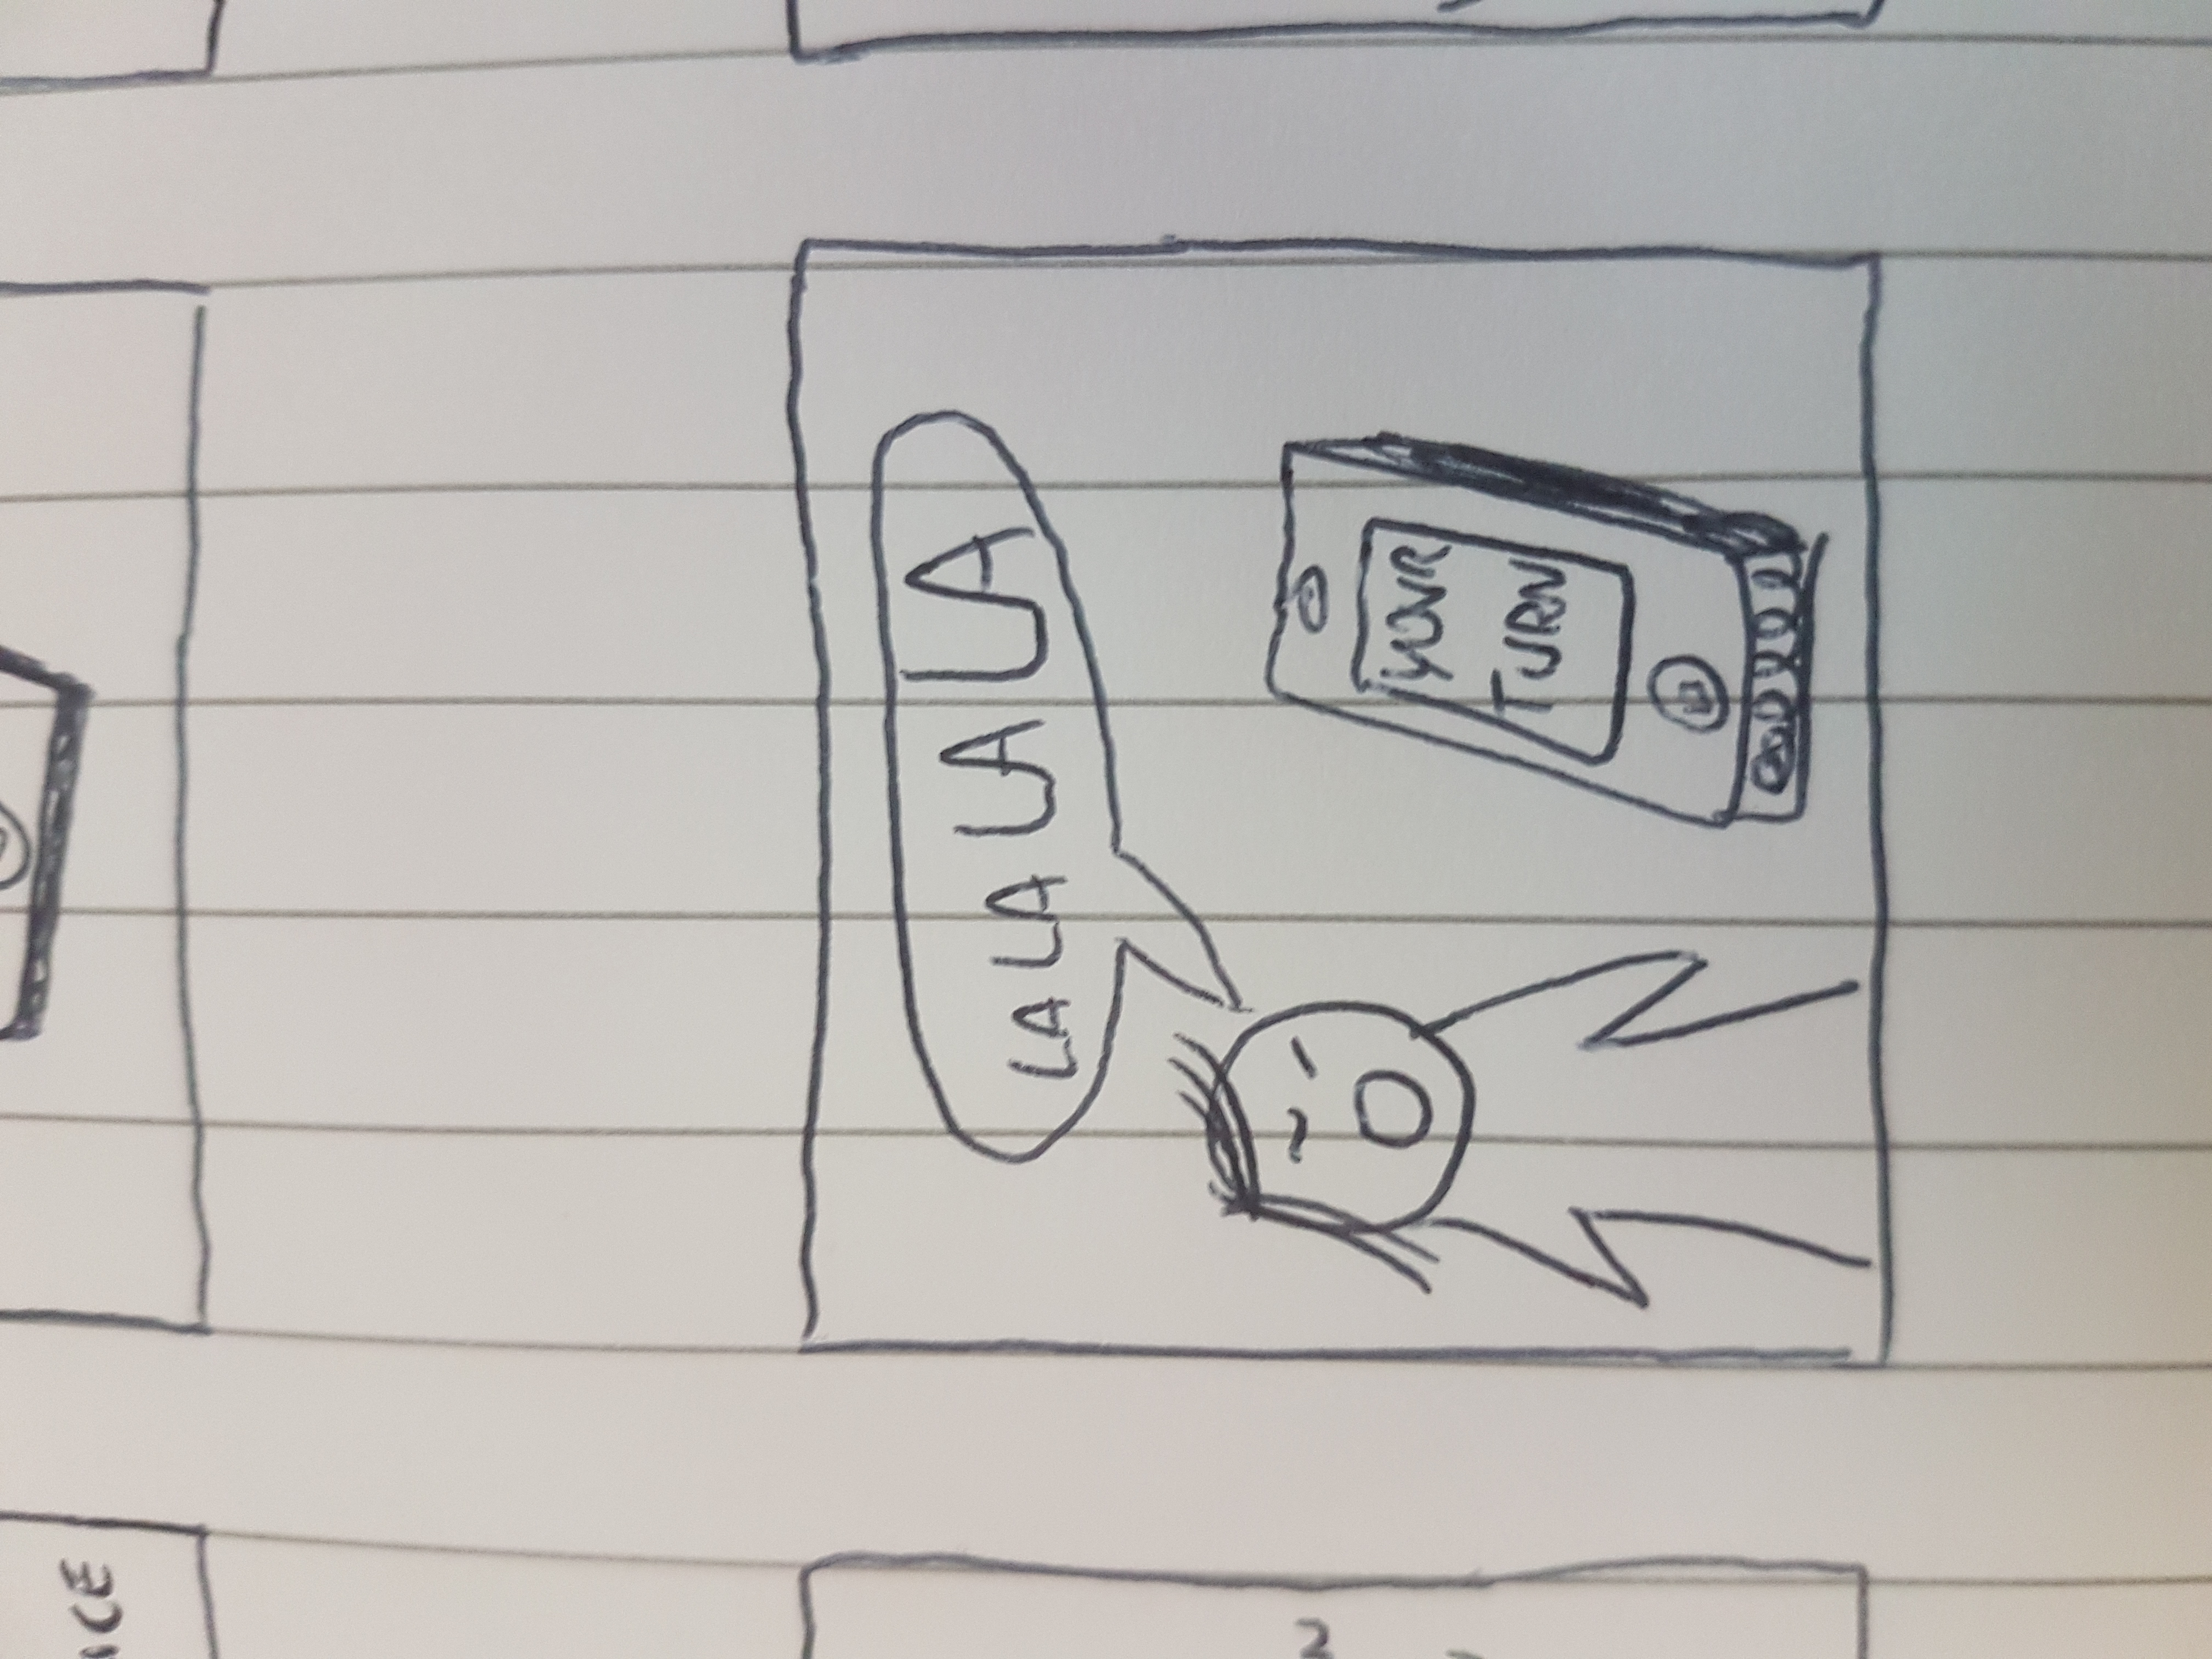 ICE
LA LA LA LA
YOUR
TURN